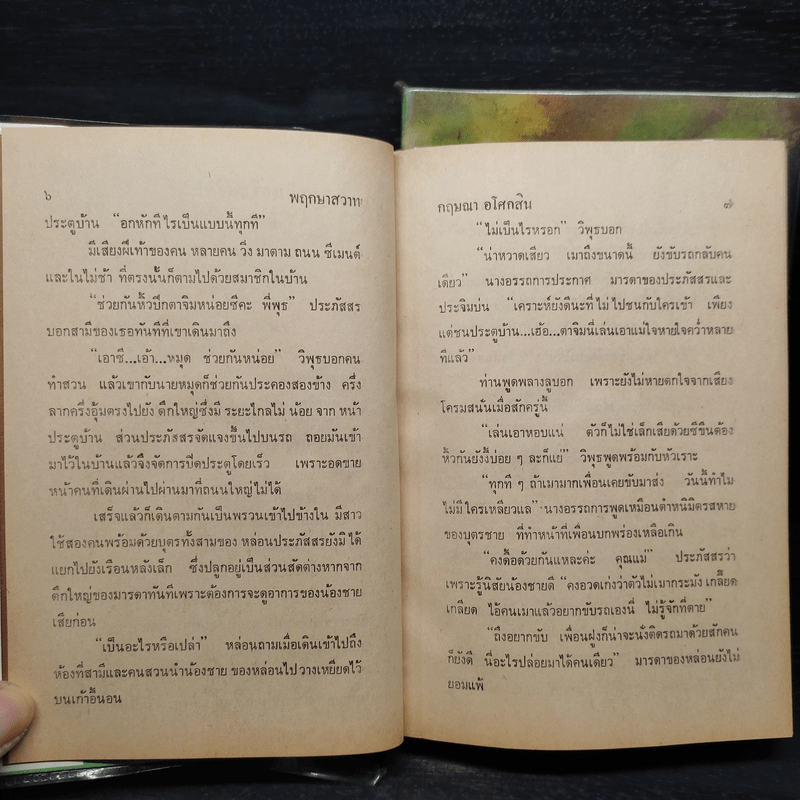 ๖ พฤกษาสวาท
ประตูบ้าน "อกหักทีไรเป็นแบบนี้ทุกที"
มีเสียงฝีเท้าของคน หลายคน วิ่ง มาตาม ถนน ซีเมนต์
และในไม่ช้า ที่ตรงนั้นก็ตามไปด้วยสมาชิกในบ้าน
"ช่วยกันหิ้วปีกตาจิมหน่อยซีคะ พี่พุธ" ประภัสสร
บอกสามีของเธอทันทีที่เขาเดินมาถึง
"เอาซี...เอ้า...หมุด ช่วยกันหน่อย" วิพุธบอกคน
ทำสวน แล้วเขากับนายหมุดก็ช่วยกันประคองสองข้าง ครึ่ง
ลากครึ่งอุ้มตรงไปยัง ตึกใหญ่ซึ่งมี ระยะไกลไม่ น้อย จาก หน้า
ประตูบ้าน ส่วนประภัสสรจัดแจงขึ้นไปบนรถ ถอยมันเข้า
มาไว้ในบ้านแล้วจึงจัดการปิดประตูโดยเร็ว เพราะอดขาย
หน้าคนที่เดินผ่านไปผ่านมาที่ถนนใหญ่ไม่ได้
เสร็จแล้วก็เดินตามกันเป็นพรวนเข้าไปข้างใน มีสาว
ใช้สองคนพร้อมด้วยบุตรทั้งสามของ หล่อนประภัสสรยังมิได้
แยกไปยังเรือนหลังเล็ก ซึ่งปลูกอยู่เป็นส่วนสัดต่างหากจาก
ตึกใหญ่ของมารดาทันทีเพราะต้องการจะดูอาการของน้องชาย
เสียก่อน
"เป็นอะไรหรือเปล่า" หล่อนถามเมื่อเดินเข้าไปถึง
ห้องที่สามีและคนสวนนำน้องชาย ของหล่อนไปวางเหยียดไว้
บนเก้าอี้นอน
กฤษณา อโศกสิน ๗
"ไม่เป็นไรหรอก" วิพุธบอก
"น่าหวาดเสียว เมาถึงขนาดนี้ ยังขับรถกลับคน
เดียว" นางอรรถการประกาศ มารดาของประภัสสรและ
ประจิมบ่น "เคราะห์ยังดีนะที่ไม่ไปชนกับใครเข้า เพียง
แต่ชนประตูบ้าน...เฮ้อ...ตาจิมนี่เล่นเอาแม่ใจหายใจคว่ำหลาย
ทีแล้ว"
ท่านพูดพลางลูบอก เพราะยังไม่หายตกใจจากเสียง
โครมสนั่นเมื่อสักครู่นี้
"เล่นเอาหอบแน่ ตัวก็ไม่ใช่เล็กเสียด้วยซีขืนต้อง
หิ้วกันยังงี้บ่อย ๆ ละก็แย่" วิพุธพูดพร้อมกับหัวเราะ
"ทุกที ๆ ถ้าเมามากเพื่อนเคยขับมาส่ง วันนี้ทำไม
ไม่มีใครเหลียวแล" นางอรรถการพูดเหมือนตำหนิมิตรสหาย
ของบุตรชาย ที่ทำหน้าที่เพื่อนบกพร่องเหลือเกิน
"คงดื้อด้วยกันแหละค่ะ คุณแม่" ประภัสสรว่า
เพราะรู้นิสัยน้องชายดี "คงอวดเก่งว่าตัวไม่เมากระมัง เกลี๊ยด
เกลียด ไอ้คนเมาแล้วอยากขับรถเองนี่ ไม่รู้จักที่ตาย"
"ถึงอยากขับ เพื่อนฝูงก็น่าจะนั่งติดรถมาด้วยสักคน
ก็ยังดี นี่อะไรปล่อยมาได้คนเดียว" มารดาของหล่อนยังไม่
ยอมแพ้